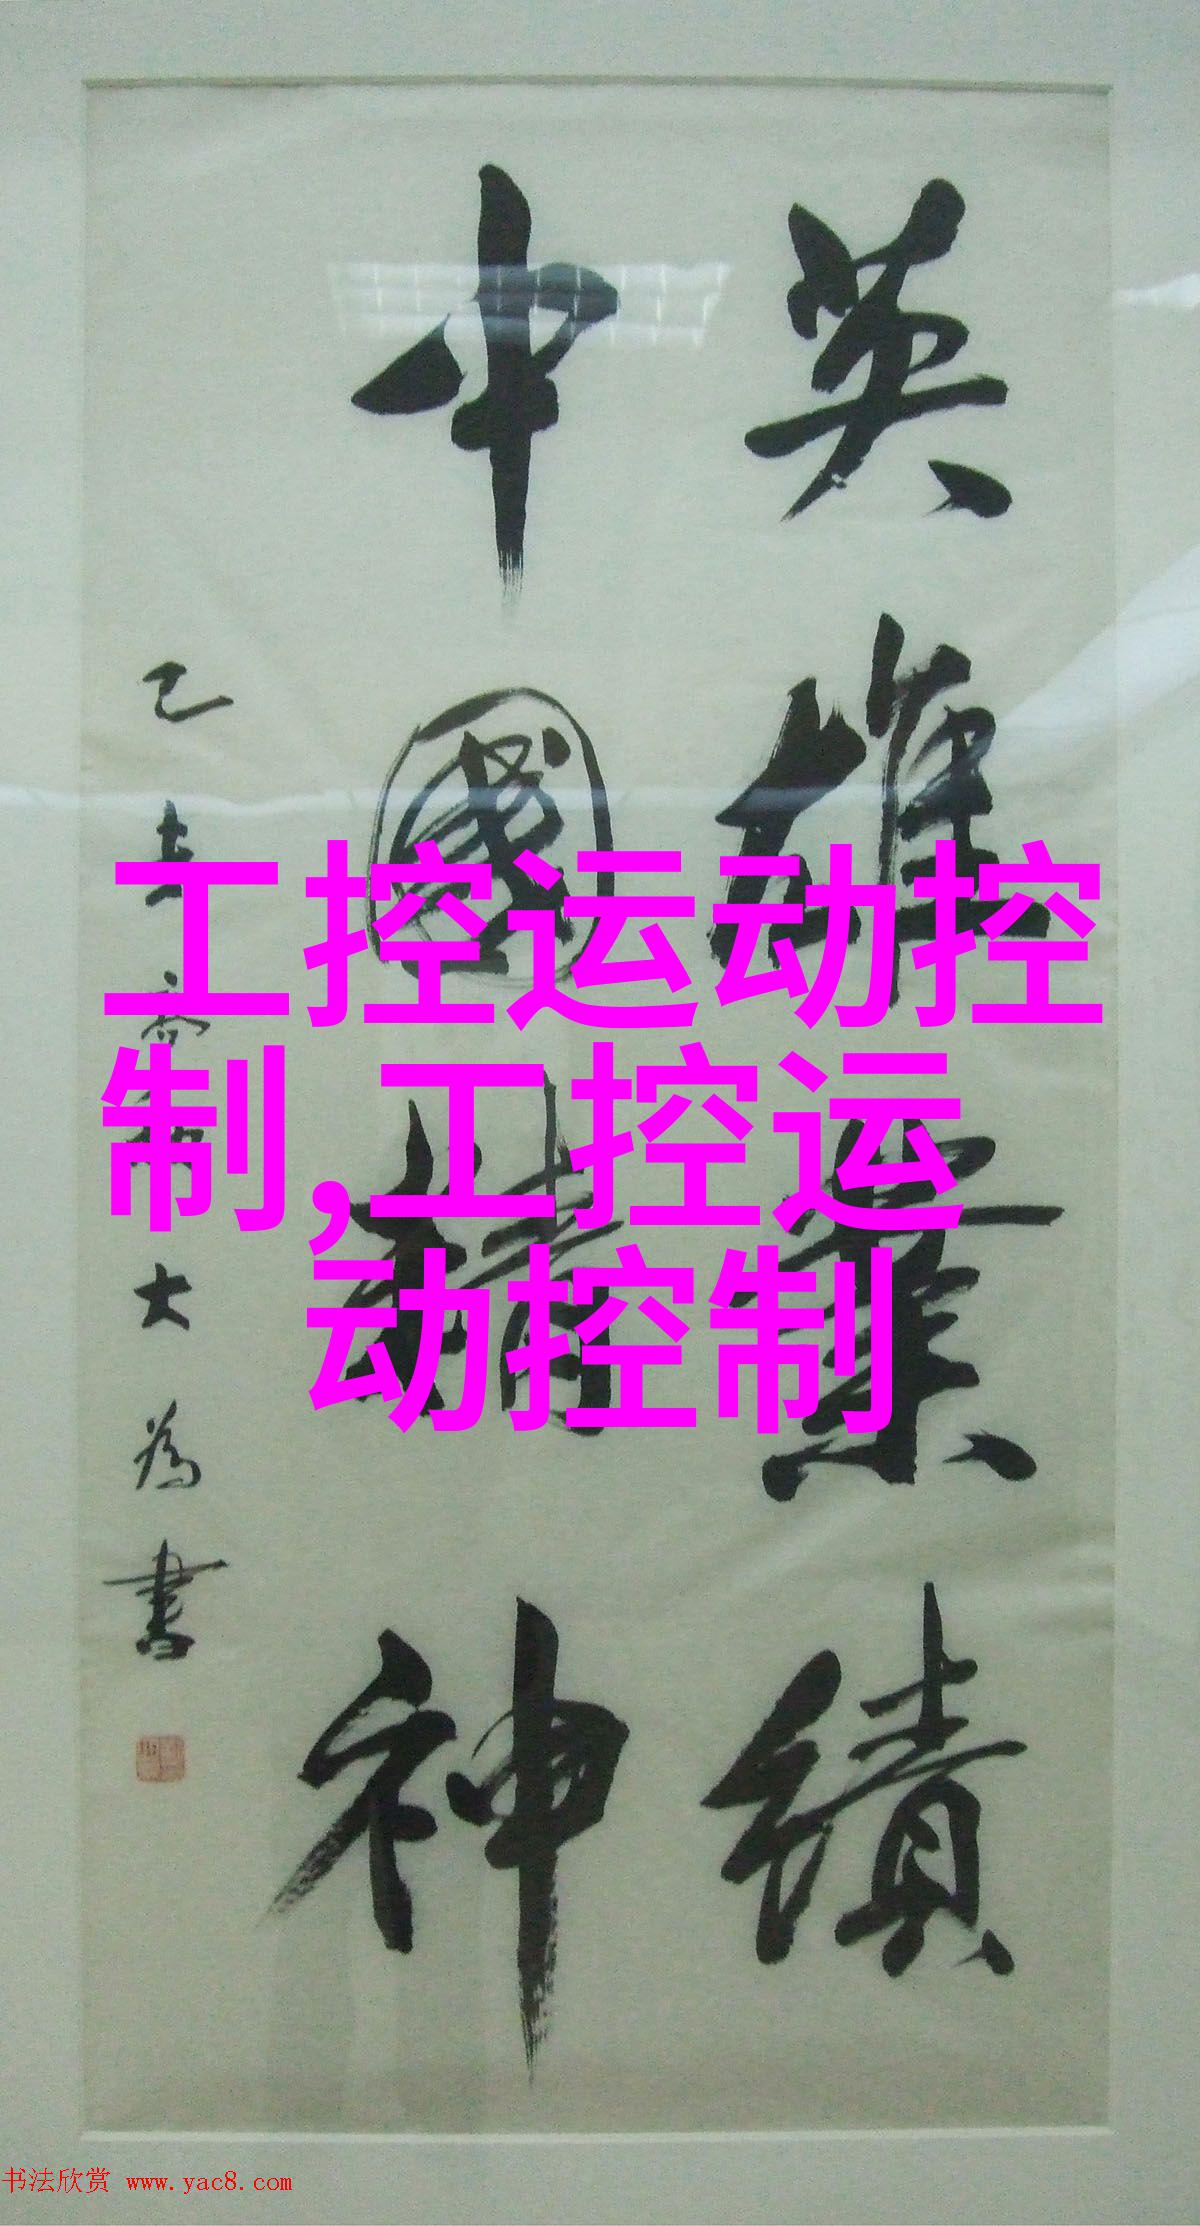 英雄業績
中國精神
大為書
工控运动控
制,工控运
动控制
书法欣赏 www.yac8.com